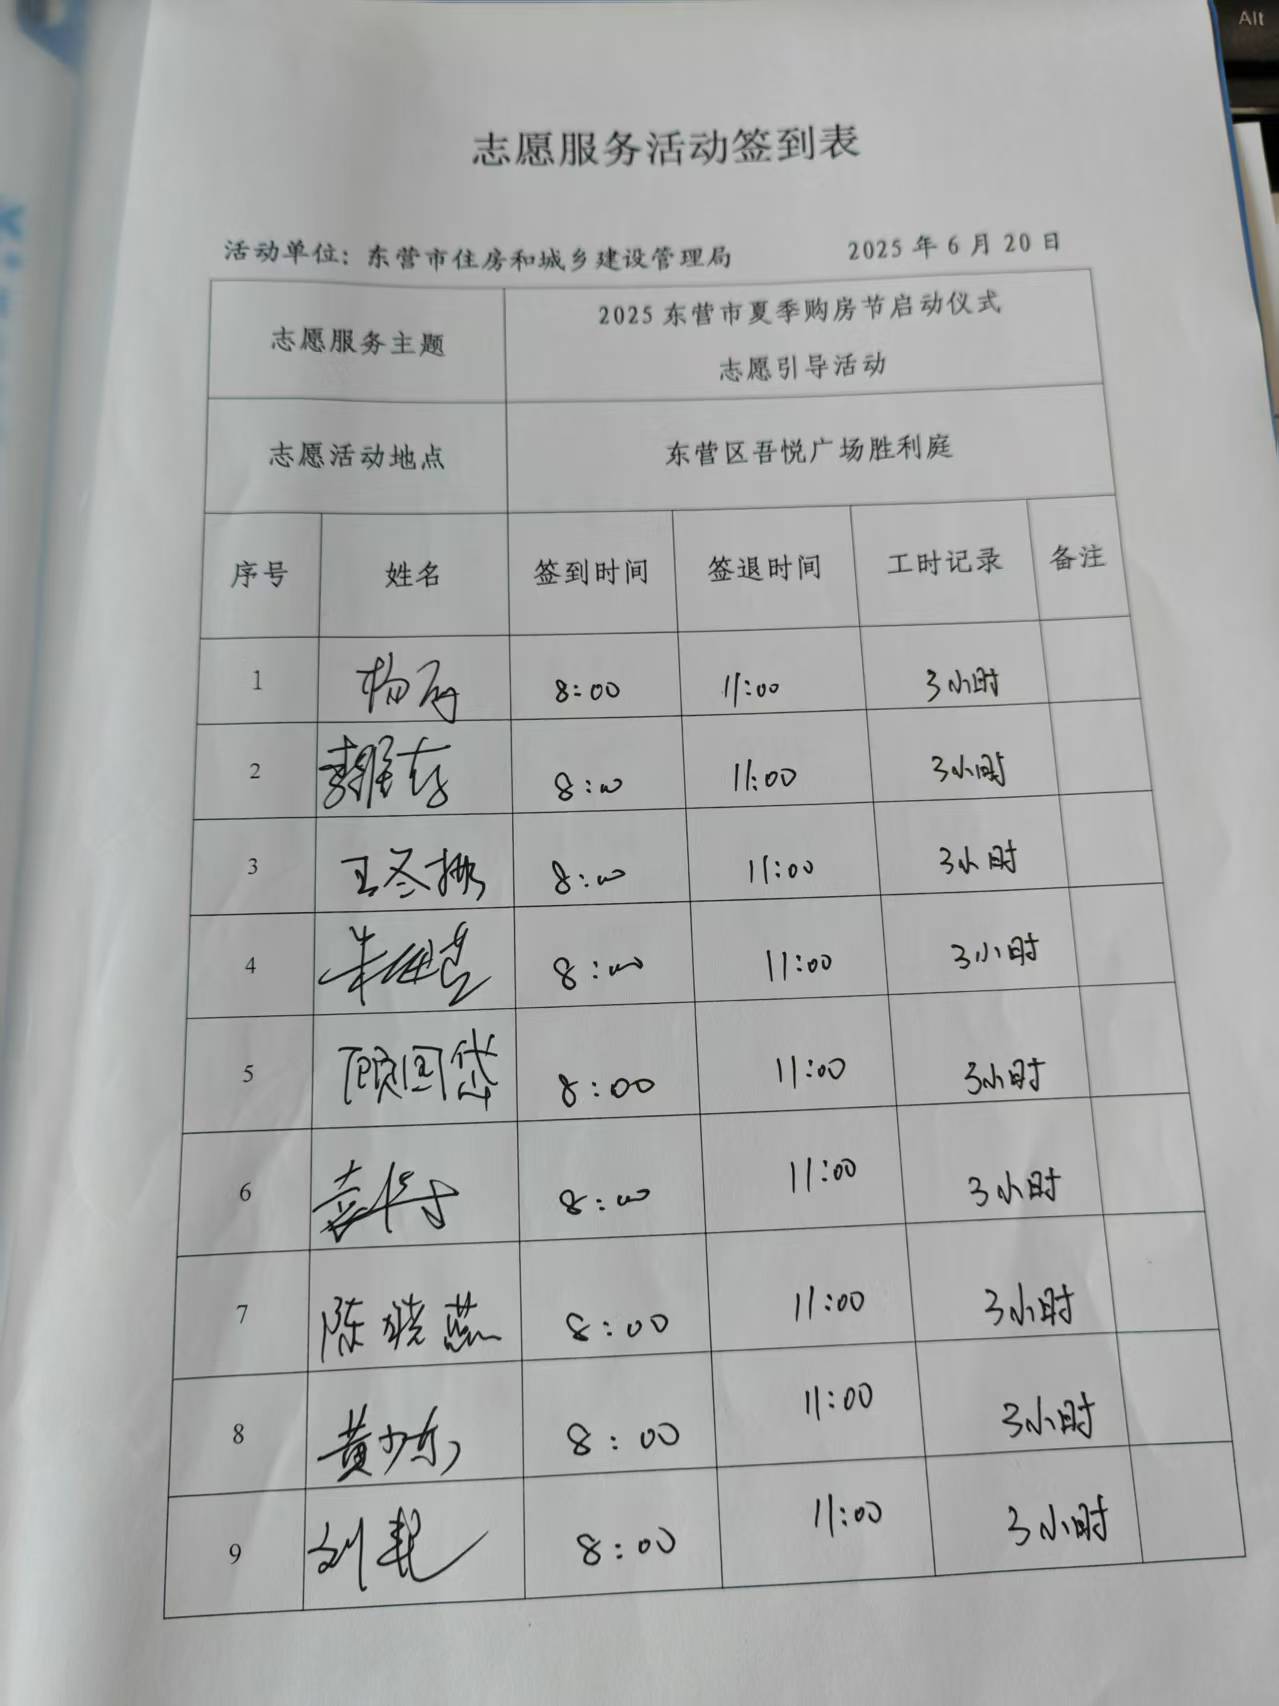 Alt
志愿服务活动签到表
活动单位：东营市住房和城乡建设管理局 2025 年 6 月 20 日
志愿服务主题 2025 东营市夏季购房节启动仪式
志愿引导活动
志愿活动地点 东营区吾悦广场胜利庭
序号 姓名 签到时间 签退时间 工时记录 备注
1 8:00 11:00 3小时
2 8:00 11:00 3小时
3 8:00 11:00 3小时
4 8:00 11:00 3小时
5 顾国岱 8:00 11:00 3小时
6 8:00 11:00 3小时
7 陈晓燕 8:00 11:00 3小时
8 黄少东 8:00 11:00 3小时
9 8:00 11:00 3小时